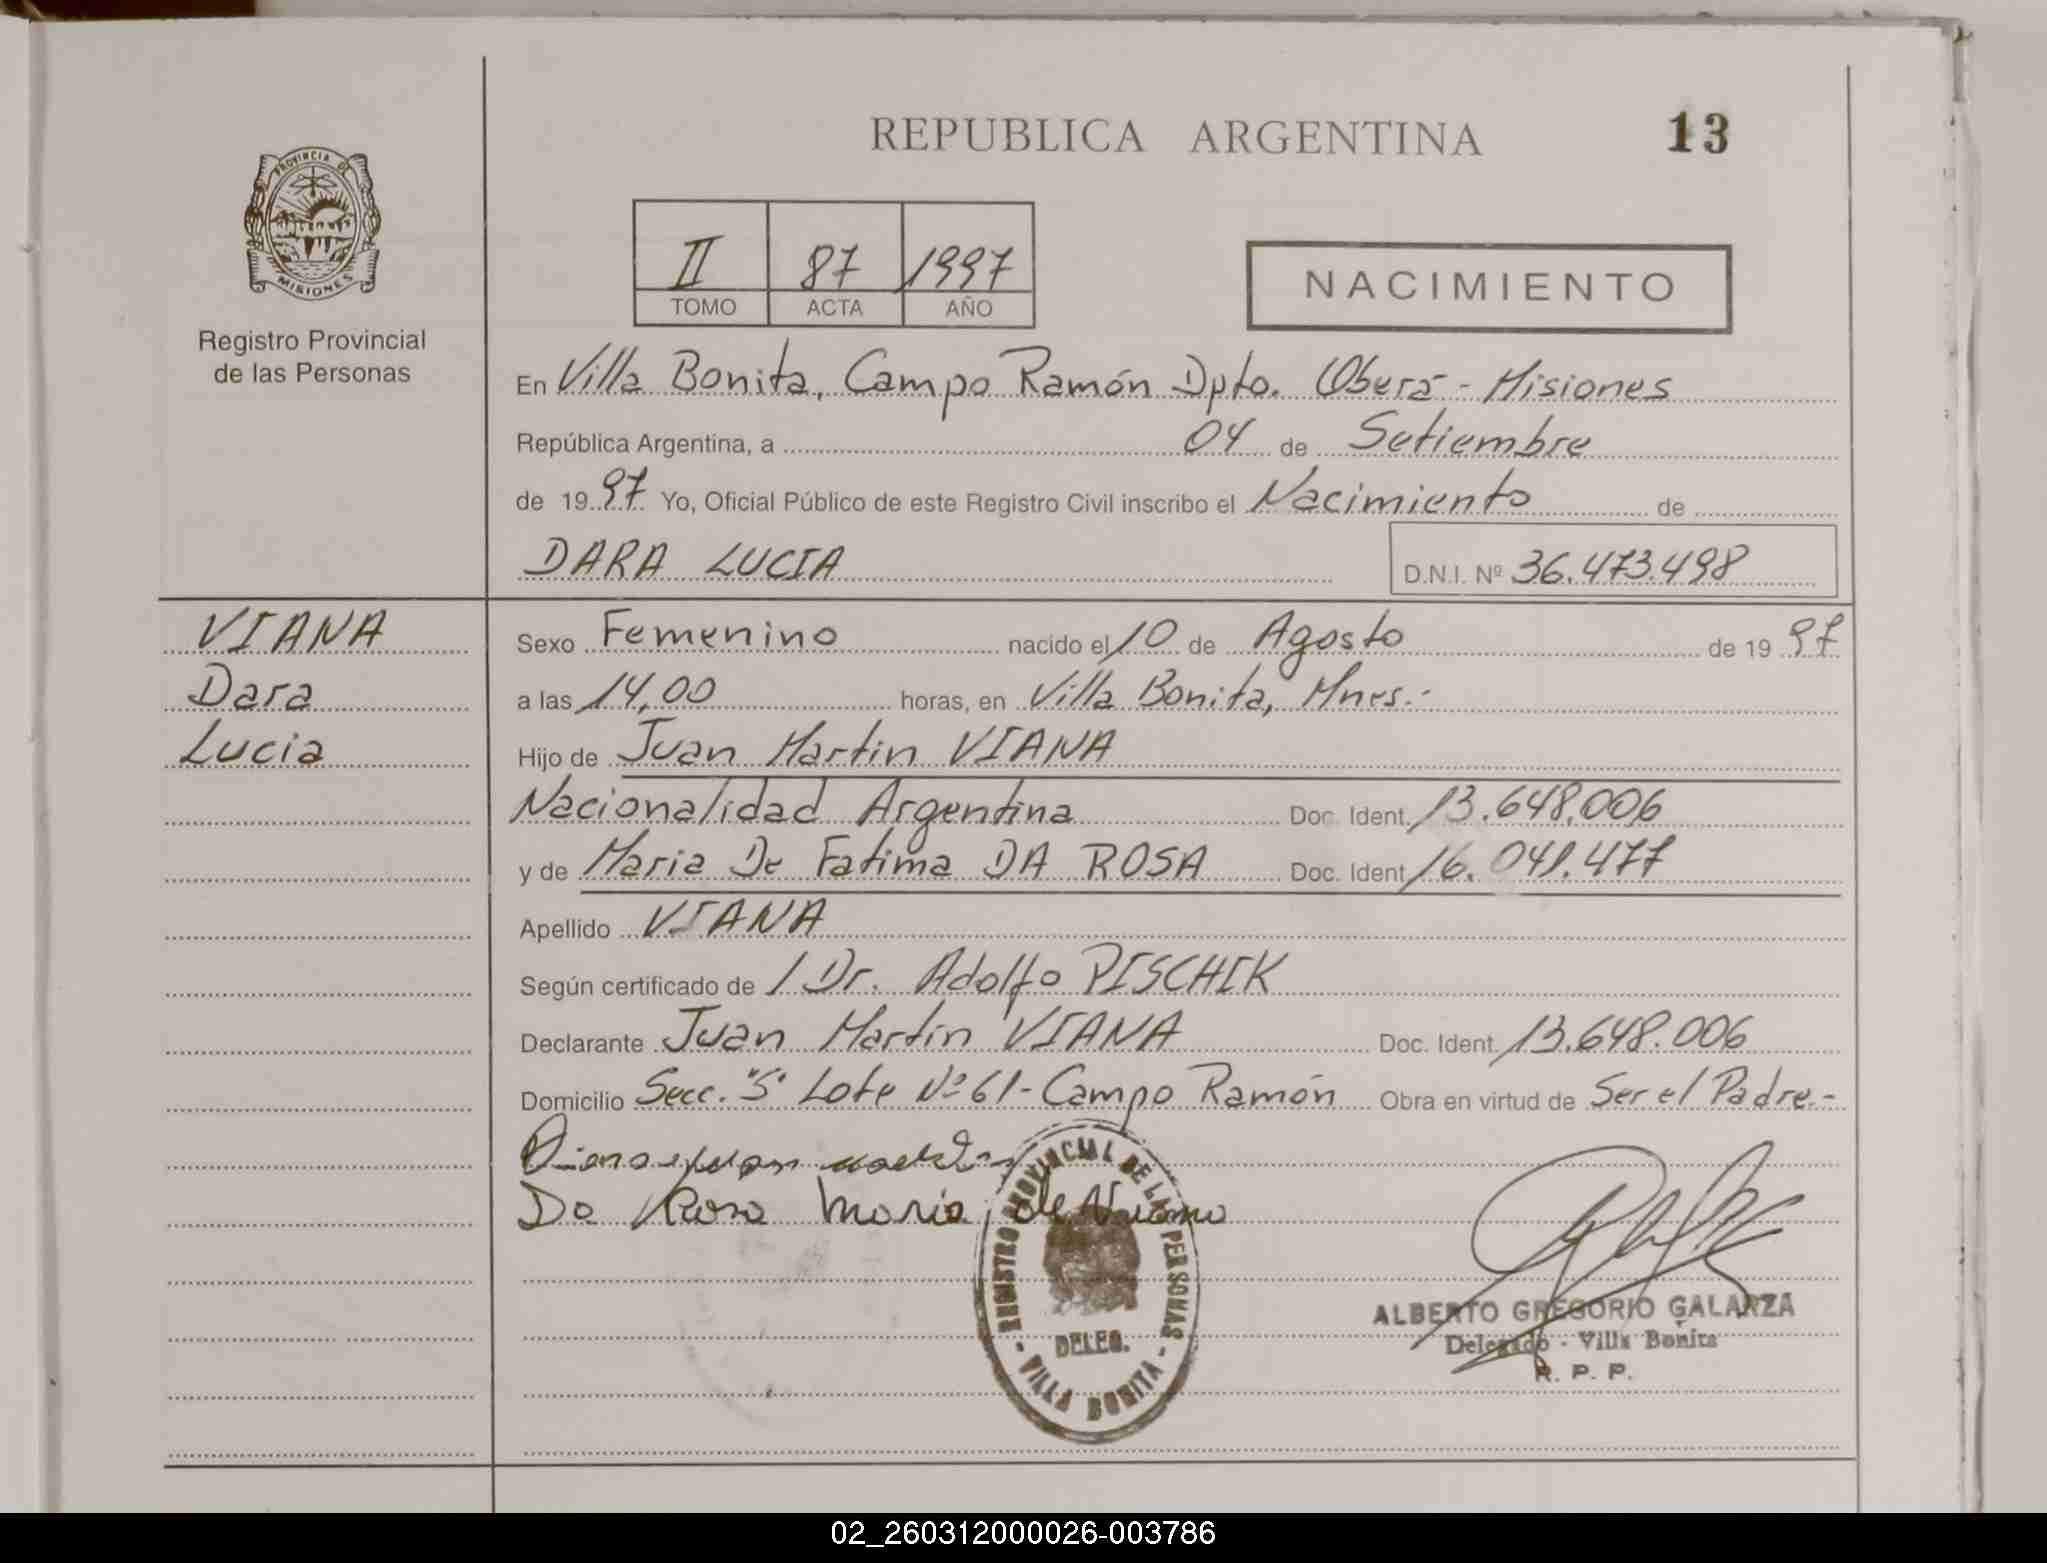 REPUBLICA ARGENTINA
13
PROVINCIA DE MISIONES
Registro Provincial
de las Personas
II 87 1997
TOMO ACTA AÑO
NACIMIENTO
En Villa Bonita, Campo Ramón Dpto. Oberá - Misiones
República Argentina, a 04 de Setiembre
de 1997 Yo, Oficial Público de este Registro Civil inscribo el Nacimiento de
DARA LUCIA D.N.I. Nº 36.473.498
VIANA
Dara
Lucia
Sexo Femenino nacido el 10 de Agosto de 1997
a las 14,00 horas, en Villa Bonita, Mnes.-
Hijo de Juan Martin VIANA
Nacionalidad Argentina Doc. Ident. 13.648.006
y de Maria De Fatima DA ROSA Doc. Ident 16.041.477
Apellido VIANA
Según certificado de / Dr. Adolfo PISCHIK
Declarante Juan Martin VIANA Doc. Ident. 13.648.006
Domicilio Secc. "5" Lote Nº 61 - Campo Ramón Obra en virtud de Ser el Padre.-
Da Rosa Maria de
REGISTRO PROVINCIAL DE LAS PERSONAS
DELEG.
- VILLA BONITA -
ALBERTO GREGORIO GALARZA
Delegado - Villa Bonita
R. P. P.
02_260312000026-003786